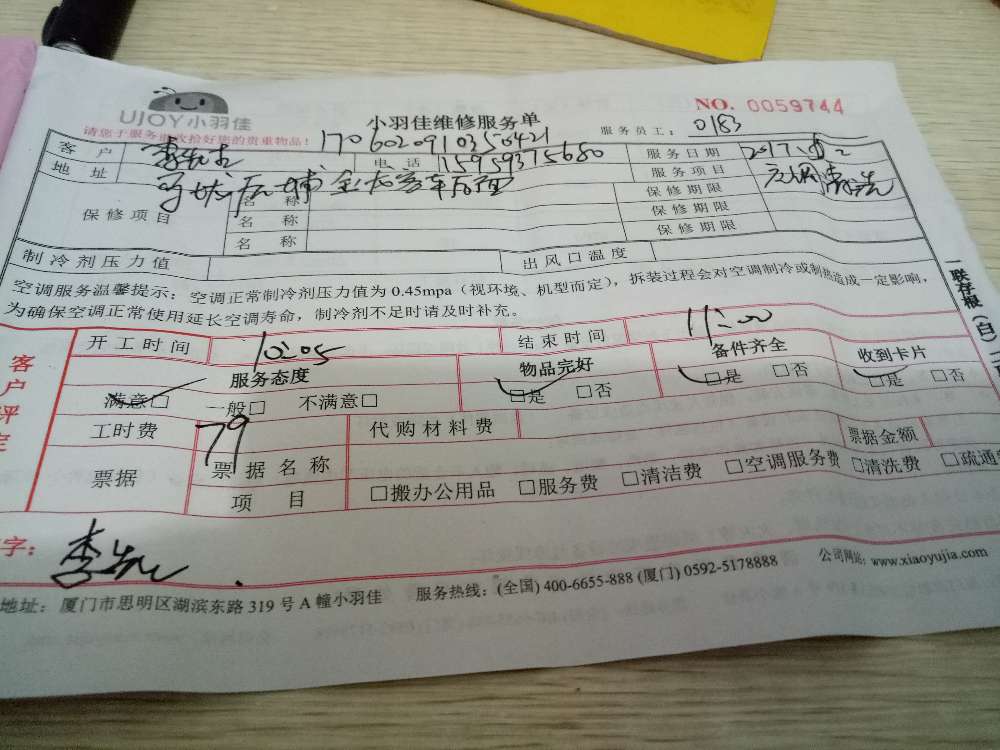 UJOY小羽佳
小羽佳维修服务单
NO. 0059744
请您于服务前收拾好您的贵重物品!
1706020910356421
服务员工: 0183
客户
电话 15959375680
服务日期 2017
地址
后埔
金龙客车后面
服务项目
空调清洗
保修项目
名称
保修期限
名称
保修期限
名称
保修期限
制冷剂压力值
出风口温度
空调服务温馨提示:空调正常制冷剂压力值为 0.45mpa(视环境、机型而定),拆装过程会对空调制冷或制热造成一定影响,
为确保空调正常使用延长空调寿命,制冷剂不足时请及时补充。
一联存根(白)二
客户评定
开工时间 10:05
结束时间 11:00
服务态度
物品完好
备件齐全
收到卡片
满意□ 一般□ 不满意□
□是 □否
□是 □否
□是 □否
工时费 79
代购材料费
票据
票据名称
票据金额
项目 □搬办公用品 □服务费 □清洁费 □空调服务费 □清洗费 □疏通
字:
地址:厦门市思明区湖滨东路 319 号 A 幢小羽佳 服务热线:(全国) 400-6655-888 (厦门) 0592-5178888 公司网站:www.xiaoyujia.com